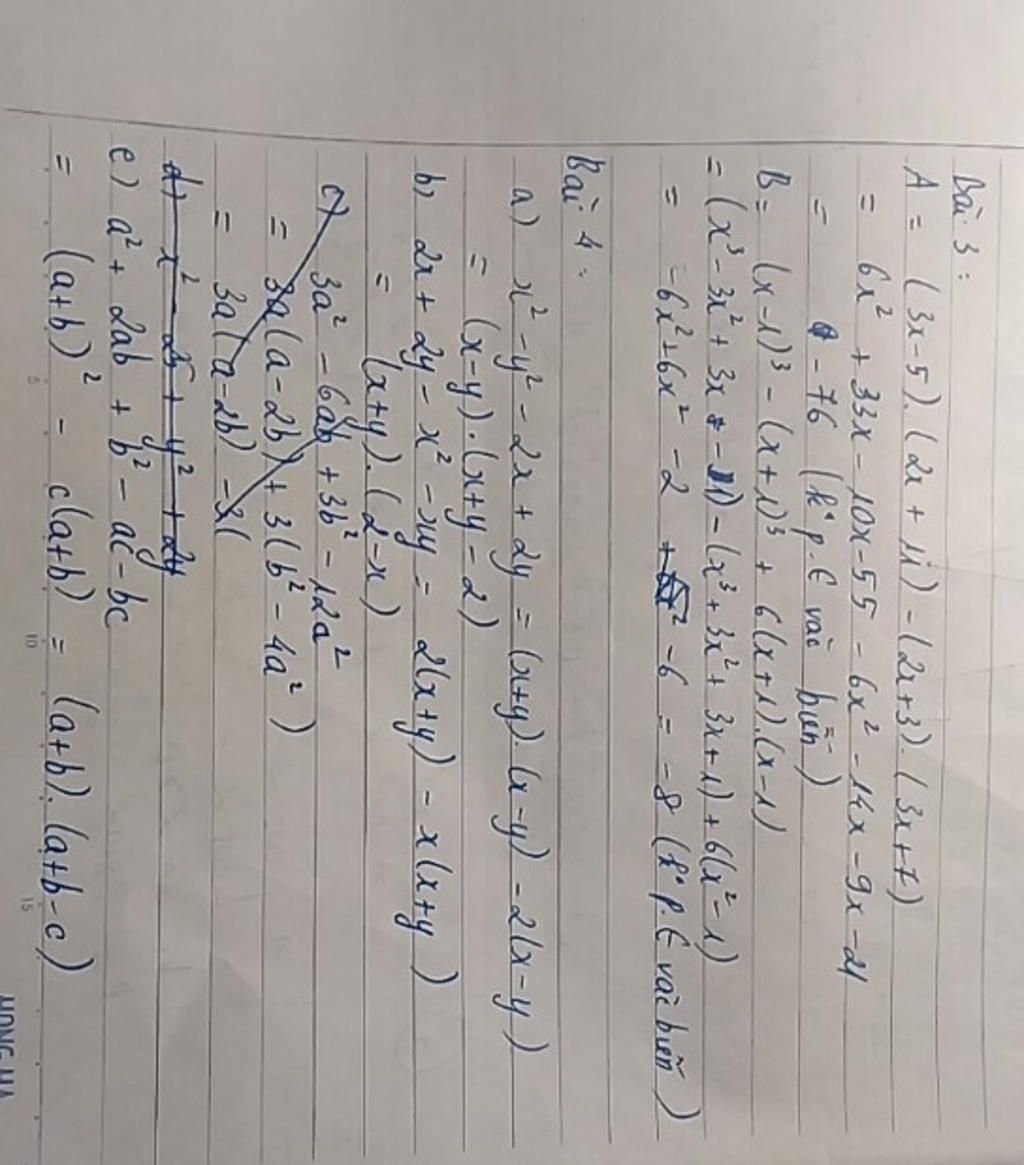 Bài 3:
A = (3x-5).(2x+11) - (2x+3).(3x+7)
= 6x² + 33x - 10x - 55 - 6x² - 14x - 9x - 21
= - 76 (k° p.∈ vào biến)
B = (x-1)³ - (x+1)³ + 6(x+1).(x-1)
= (x³ - 3x² + 3x - 1) - (x³ + 3x² + 3x + 1) + 6(x² - 1)
= -6x² + 6x² - 2 - 6 = -8 (k° p.∈ vào biến)
Bài 4:
a) x² - y² - 2x + 2y = (x+y).(x-y) - 2(x-y)
= (x-y).(x+y-2)
b) 2x + 2y - x² - xy = 2(x+y) - x(x+y)
= (x+y).(2-x)
c) 3a² - 6ab + 3b² - 12a²
= 3a(a-2b) + 3(b² - 4a²)
= 3a(a-2b) - 3(
d) x² - 25 + y² + 2y
e) a² + 2ab + b² - ac - bc
= (a+b)² - c(a+b) = (a+b).(a+b-c)
5 10 15